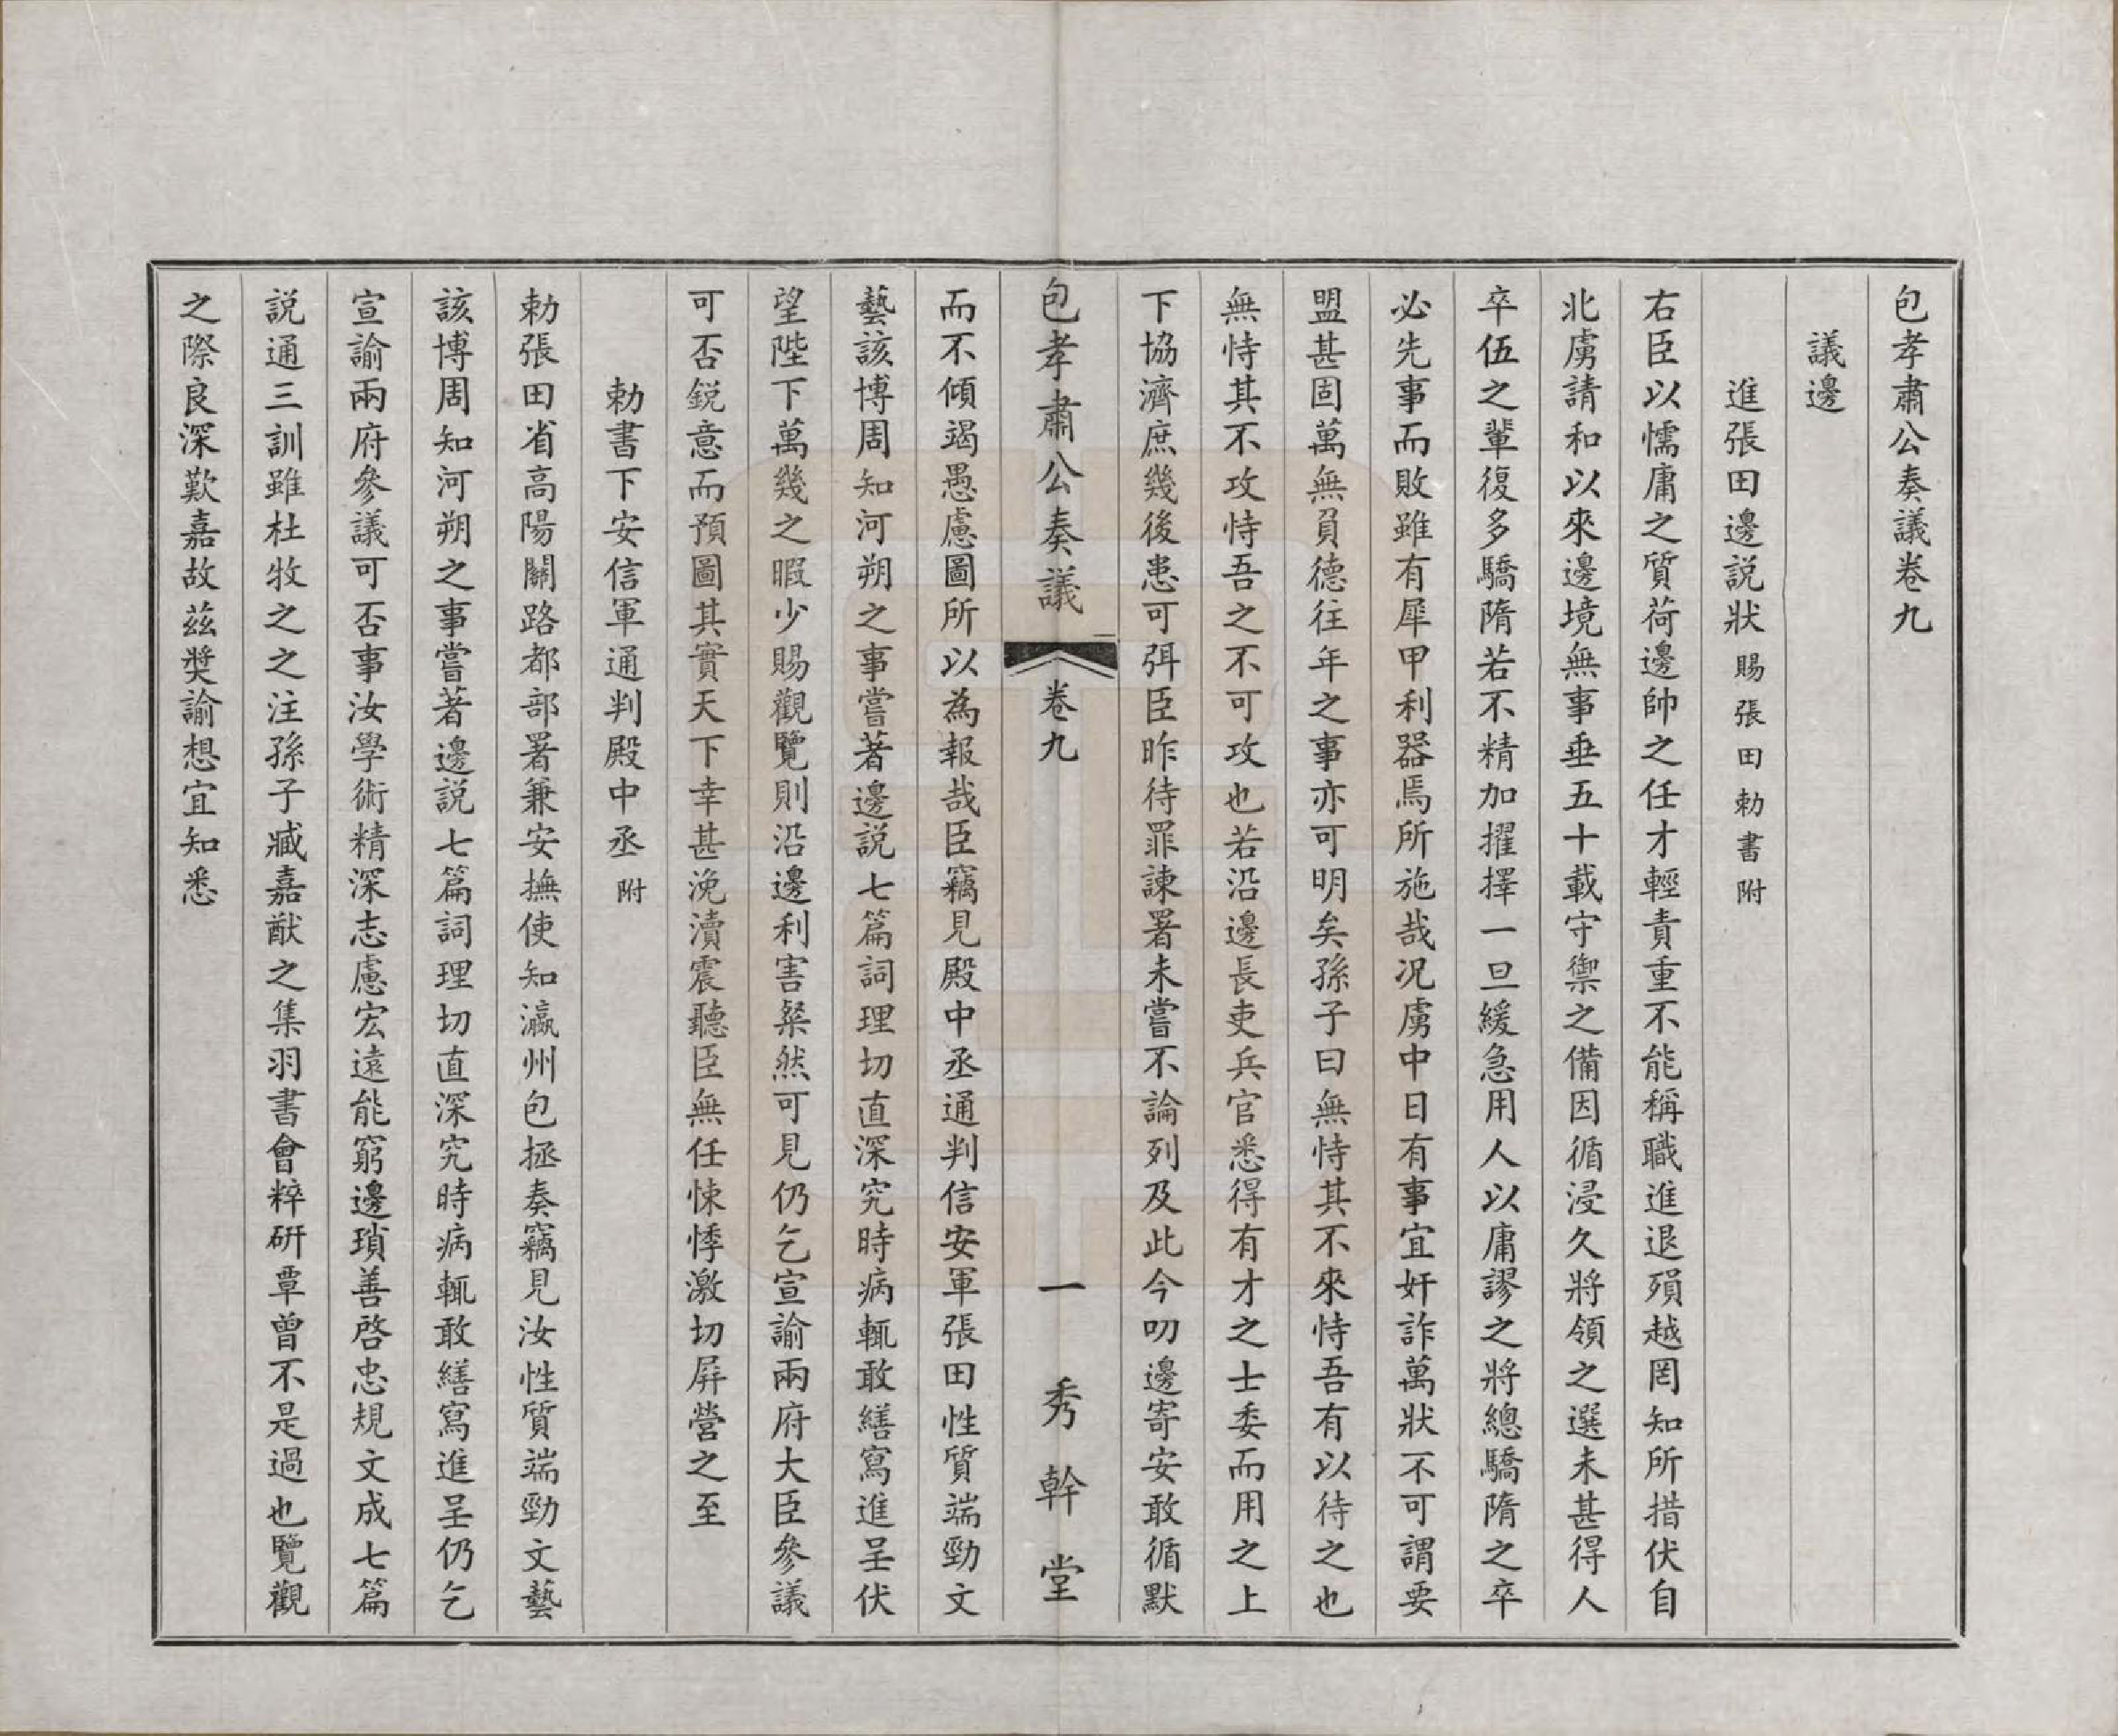 包孝肅公奏議卷九
議邊
進張田邊説狀 賜張田勅書附
右臣以懦庸之質荷邊帥之任才輕責重不能稱職進退殞越罔知所措伏自
北虜請和以來邊境無事垂五十載守禦之備因循浸久將領之選未甚得人
卒伍之輩復多驕隋若不精加擢擇一旦緩急用人以庸謬之將總驕隋之卒
必先事而敗雖有犀甲利器焉所施哉况虜中日有事宜奸詐萬狀不可謂要
盟甚固萬無負德往年之事亦可明矣孫子曰無恃其不來恃吾有以待之也
無恃其不攻恃吾之不可攻也若沿邊長吏兵官悉得有才之士委而用之上
下協濟庶幾後患可弭臣昨待罪諫署未嘗不論列及此今叨邊寄安敢循默
包孝肅公奏議 卷九 一 秀幹堂
而不傾竭愚慮圖所以為報哉臣竊見殿中丞通判信安軍張田性質端勁文
藝該博周知河朔之事嘗著邊説七篇詞理切直深究時病輒敢繕寫進呈伏
望陛下萬幾之暇少賜觀覽則沿邊利害粲然可見仍乞宣諭兩府大臣參議
可否鋭意而預圖其實天下幸甚浼瀆震聽臣無任悚悸激切屏營之至
勅書下安信軍通判殿中丞 附
勅張田省高陽關路都部署兼安撫使知瀛州包拯奏竊見汝性質端勁文藝
該博周知河朔之事嘗著邊説七篇詞理切直深究時病輒敢繕寫進呈仍乞
宣諭兩府參議可否事汝學術精深志慮宏遠能窮邊瑣善啓忠規文成七篇
説通三訓雖杜牧之之注孫子臧嘉猷之集羽書會粹研覃曾不是過也覽觀
之際良深歎嘉故茲奬諭想宜知悉